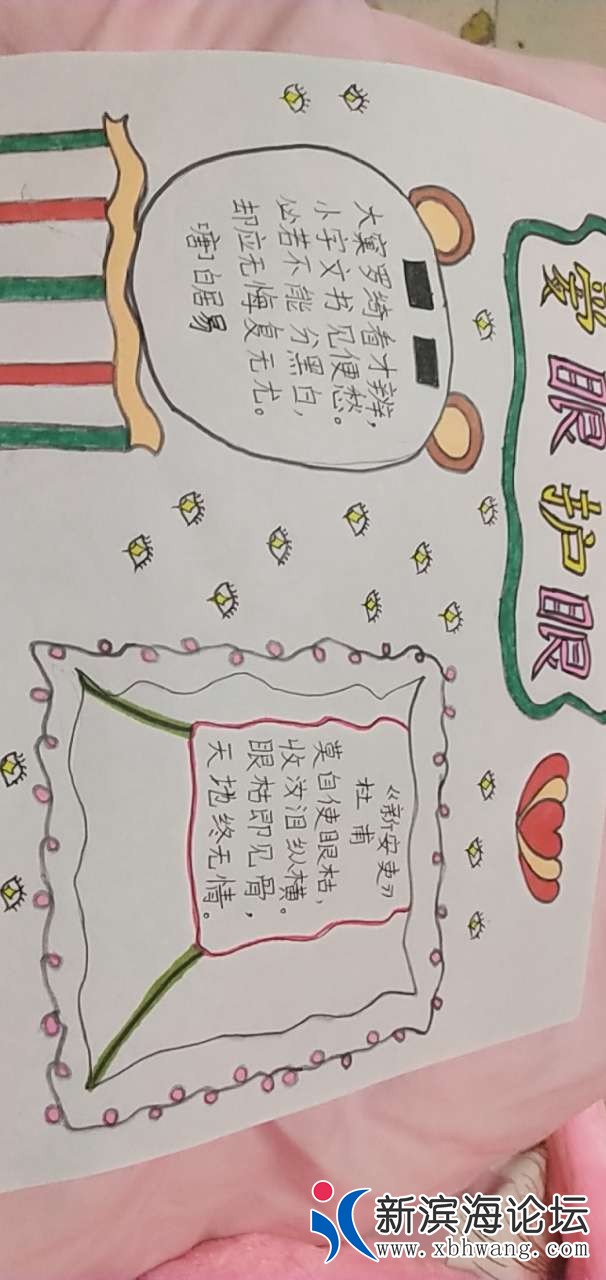 爱眼护眼
大窠罗绮看才辨,
小字文书见便愁。
必若不能分黑白,
却应无悔复无尤。
[唐] 白居易
《新安吏》
杜甫
莫自使眼枯,
收汝泪纵横。
眼枯即见骨,
天地终无情。
新滨海论坛
www.xbhwang.com